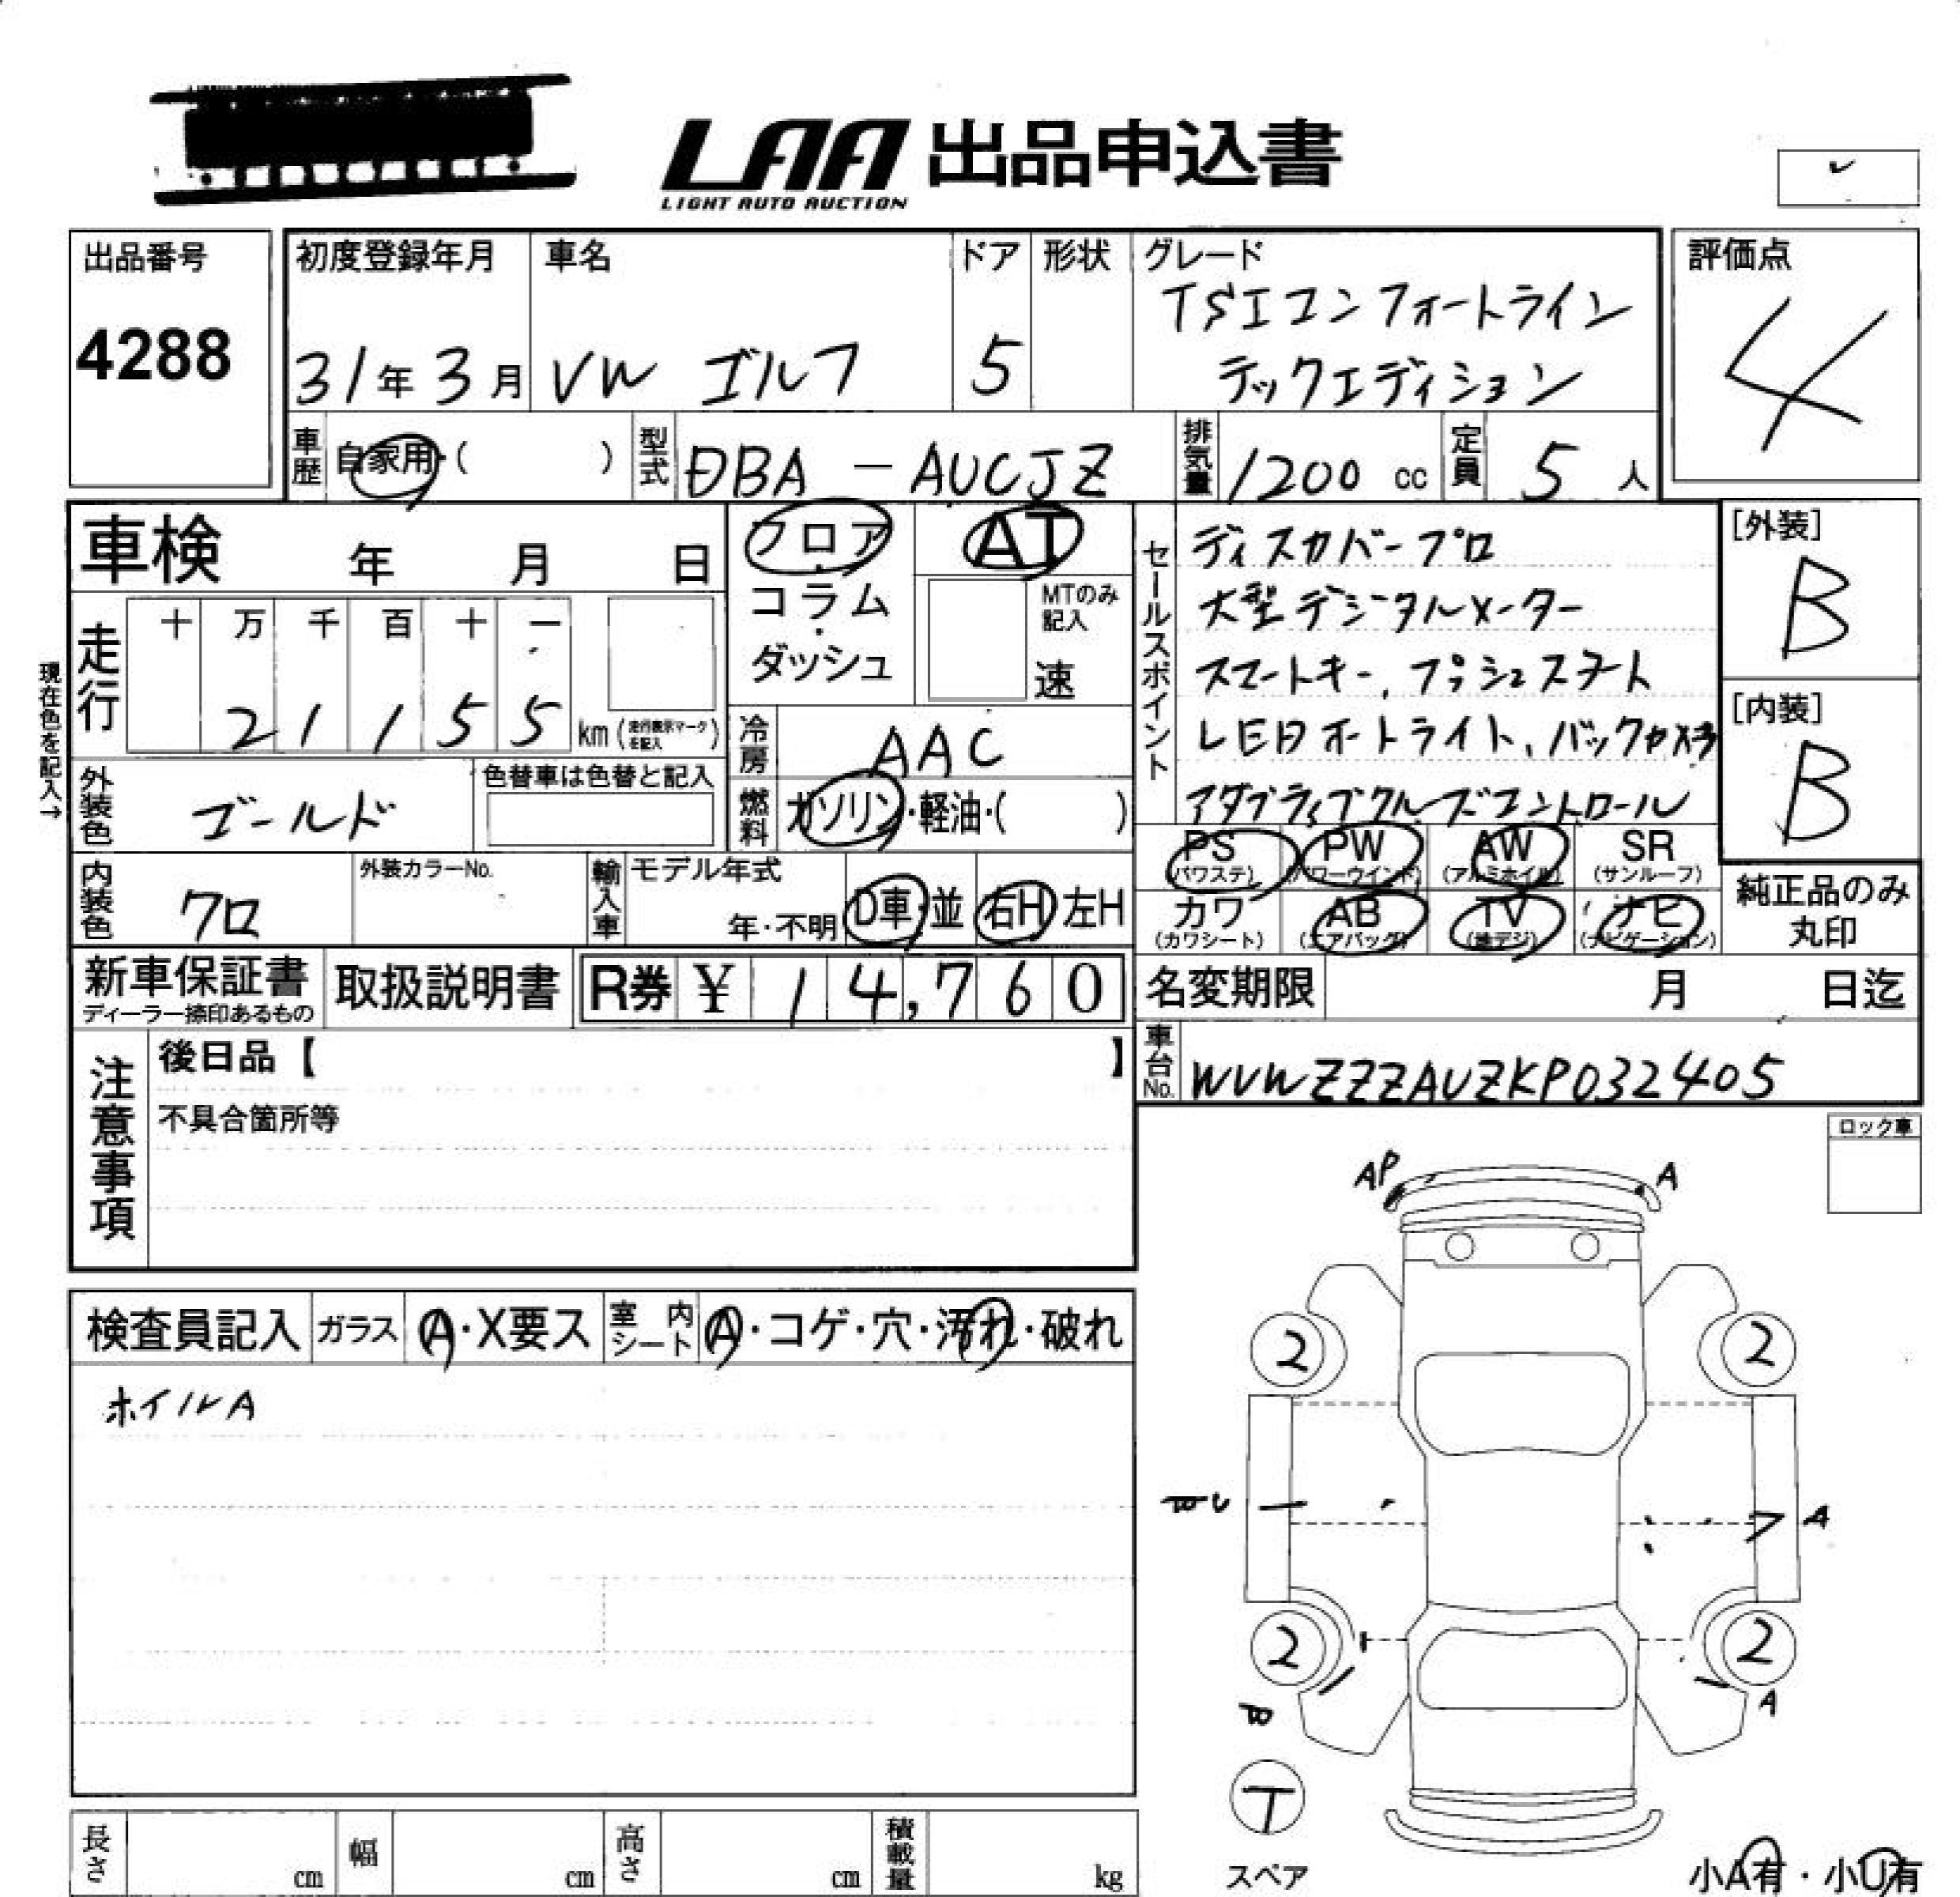 LAA 出品申込書
LIGHT AUTO AUCTION
出品番号
4288
初度登録年月
31年3月
車名
VW ゴルフ
ドア
5
形状
グレード
TSIコンフォートライン
テックエディション
評価点
4
車歴 自家用・( )
型式 DBA - AUCJZ
排気量 1200 cc
定員 5 人
車検 年 月 日
フロア・コラム・ダッシュ
AT
MTのみ記入
速
セールスポイント
ディスカバープロ
大型デジタルメーター
スマートキー、プッシュスタート
LED ライト、バックカメラ
アダプティブクルーズコントロール
[外装]
B
[内装]
B
現在色を記入→
走行
十 万 千 百 十 一
2 1 1 5 5 km (走行表示マークを記入)
冷房 AAC
外装色 ゴールド
色替車は色替と記入
燃料 ガソリン・軽油・( )
PS (パワステ)
PW (パワーウインド)
AW (アルミホイル)
SR (サンルーフ)
カワ (カワシート)
AB (エアバッグ)
TV (地デジ)
ナビ (ナビゲーション)
純正品のみ丸印
内装色 クロ
外装カラーNo.
輸入車
モデル年式
年・不明
D車・並
右H 左H
新車保証書
ディーラー捺印あるもの
取扱説明書
R券 ¥ 14,760
名変期限 月 日迄
車台No. WVWZZZAUZKP032405
注意事項
後日品【 】
不具合箇所等
ロック車
AP A
検査員記入
ガラス A・X要ス
室内シート A・コゲ・穴・汚れ・破れ
ホイルA
2 2
U A
2 2
A
T
スペア
長さ cm
幅 cm
高さ cm
積載量 kg
小A有・小U有